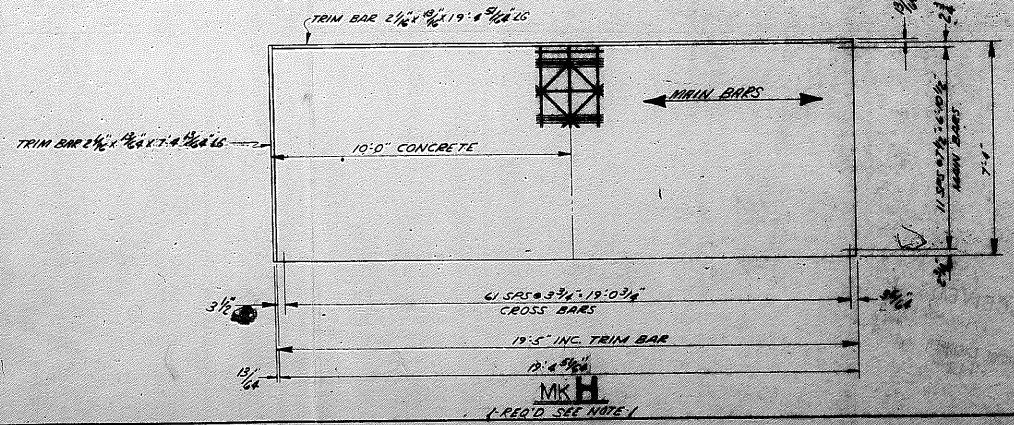 TRIM BAR 2 1/16" x 13/16 x 19'-4 51/64" LG
TRIM BAR 2 1/16" x 13/64" x 7'-4 13/64" LG
MAIN BARS
10'-0" CONCRETE
11 SPS @ 7 1/2" = 6'-10 1/2"
MAIN BARS
7'-4"
3 1/2"
61 SPS @ 3 3/4" = 19'-0 3/4"
CROSS BARS
19'-5" INC. TRIM BAR
13/64
19'-4 51/64"
MK H
1-REQ'D SEE NOTE-1